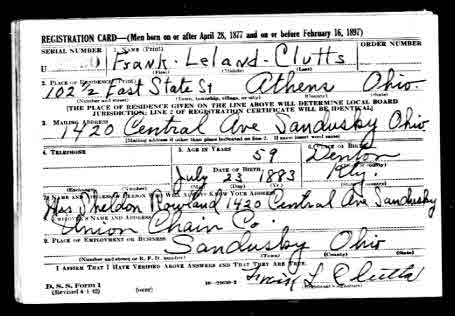 REGISTRATION CARD—(Men born on or after April 28, 1877 and on or before February 16, 1897)
SERIAL NUMBER 1. NAME (Print) ORDER NUMBER
U Frank - Leland - Clutts
(First) (Middle) (Last)
2. PLACE OF RESIDENCE (Print)
102 1/2 East State St Athens Ohio.
(Number and street) (Town, township, village, or city) (County) (State)
[THE PLACE OF RESIDENCE GIVEN ON THE LINE ABOVE WILL DETERMINE LOCAL BOARD
JURISDICTION; LINE 2 OF REGISTRATION CERTIFICATE WILL BE IDENTICAL]
3. MAILING ADDRESS
1420 Central Ave Sandusky Ohio
[Mailing address if other than place indicated on line 2. If same insert word same]
4. TELEPHONE 5. AGE IN YEARS 6. PLACE OF BIRTH
59 Denton
DATE OF BIRTH (Town or county)
July 23 1883 Ky.
(Exchange) (Number) (Mo.) (Day) (Yr.) (State or country)
7. NAME AND ADDRESS OF PERSON WHO WILL ALWAYS KNOW YOUR ADDRESS
Mrs Sheldon Rowland 1420 Central Ave Sandusky
8. EMPLOYER'S NAME AND ADDRESS
Union Chain Co.
9. PLACE OF EMPLOYMENT OR BUSINESS
Sandusky Ohio
(Number and street or R. F. D. number) (Town) (County) (State)
I AFFIRM THAT I HAVE VERIFIED ABOVE ANSWERS AND THAT THEY ARE TRUE.
L Clutts
D. S. S. Form 1
(Revised 4-1-42) (over) (Registrant's signature)